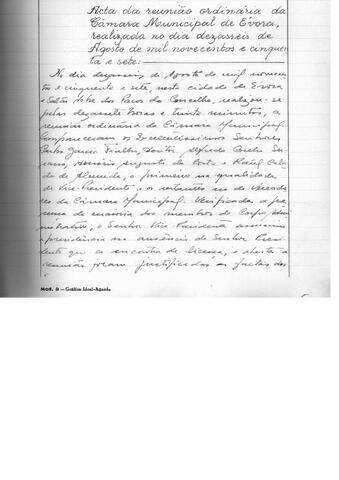 Acta da reunião ordinária da
Câmara Municipal de Évora,
realizada no dia dezasseis de
Agosto de mil novecentos e cinquen
ta e sete:
No dia dezasseis de Agosto de mil novecen
tos e cinquenta e sete, nesta cidade de Évora
e Salão Nobre dos Paços do Concelho, realizou-se
pelas dezassete horas e trinta minutos, a
reunião ordinária da Câmara Municipal.
Compareceram os Excelentíssimos Senhores
Carlos Garcia Fialho, Doutor Alfredo Coelho
Honório Augusto da Costa e Rafael
de Almeida, o primeiro na qualidade
de Vice-Presidente, e os restantes na de Vereado
res da Câmara Municipal. Verificada a pre
sença da maioria dos membros do Corpo Admi
nistrativo, o Senhor Vice-Presidente assumiu
a presidência na ausência do Senhor Presi
dente que se encontra de licença, e aberta a
reunião foram justificadas as faltas dos
Mod. 8 — Gráfica Ideal-Agueda